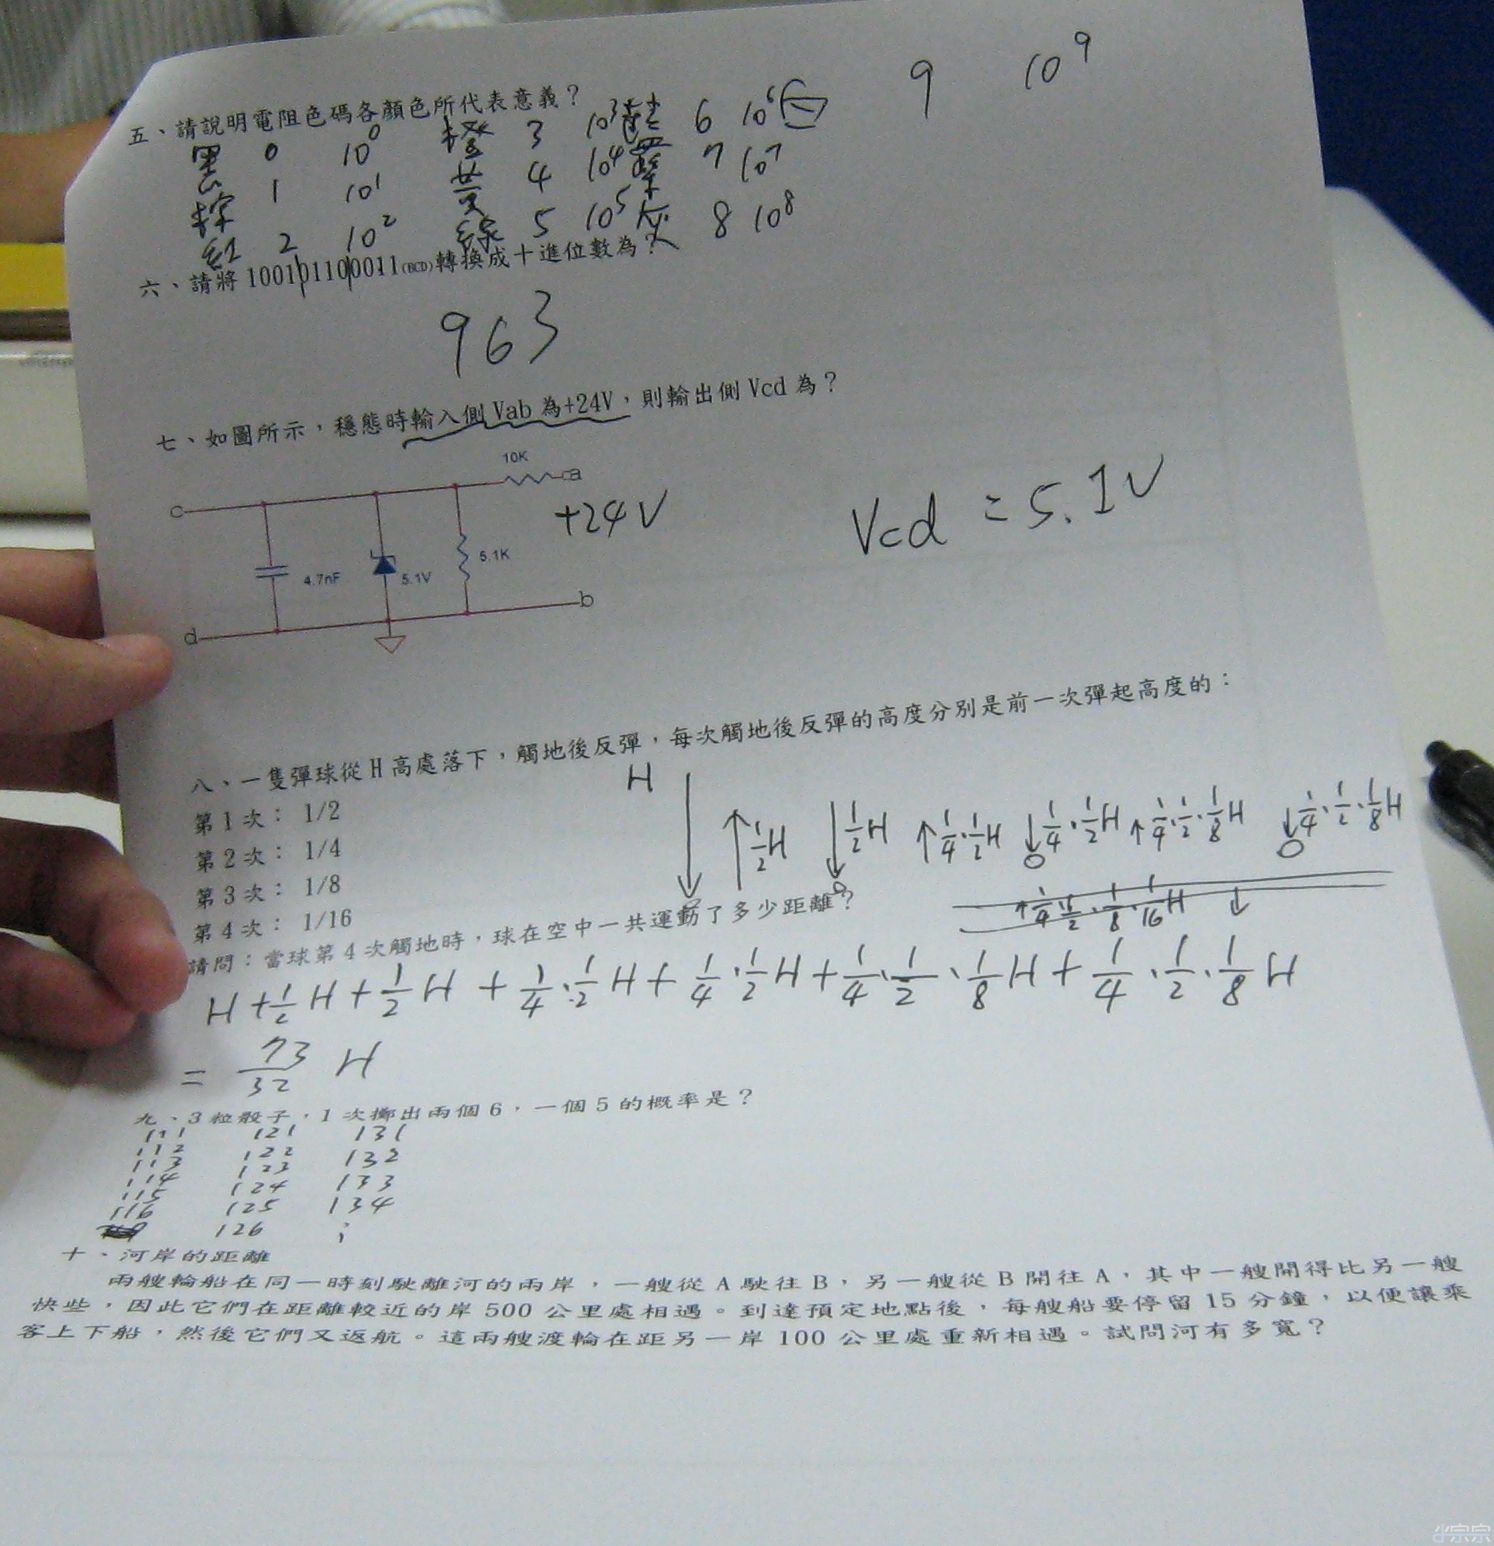 五、請說明電阻色碼各顏色所代表意義？
黑 0 10^0 橙 3 10^3 藍 6 10^6 白 9 10^9
棕 1 10^1 黃 4 10^4 紫 7 10^7
紅 2 10^2 綠 5 10^5 灰 8 10^8
六、請將 100101100011(BCD)轉換成十進位數為？
963
七、如圖所示，穩態時輸入側 Vab 為+24V，則輸出側 Vcd 為？
10K
c a
+24V
Vcd = 5.1V
4.7nF 5.1V 5.1K
d b
八、一隻彈球從 H 高處落下，觸地後反彈，每次觸地後反彈的高度分別是前一次彈起高度的：
第 1 次： 1/2
第 2 次： 1/4
第 3 次： 1/8
第 4 次： 1/16
H ↓ ↑1/2H ↓1/2H ↑1/4·1/2H ↓1/4·1/2H ↑1/4·1/2·1/8H ↓1/4·1/2·1/8H
↑1/4·1/2·1/8·1/16H ↓
請問：當球第 4 次觸地時，球在空中一共運動了多少距離？
H+1/2H+1/2H+1/4·1/2H+1/4·1/2H+1/4·1/2·1/8H+1/4·1/2·1/8H
= 73/32 H
九、3 粒骰子，1 次擲出兩個 6，一個 5 的概率是？
111 121 131
112 122 132
113 123 133
114 124 134
115 125
116 126
十、河岸的距離
兩艘輪船在同一時刻駛離河的兩岸，一艘從 A 駛往 B，另一艘從 B 開往 A，其中一艘開得比另一艘
快些，因此它們在距離較近的岸 500 公里處相遇。到達預定地點後，每艘船要停留 15 分鐘，以便讓乘
客上下船，然後它們又返航。這兩艘渡輪在距另一岸 100 公里處重新相遇。試問河有多寬？